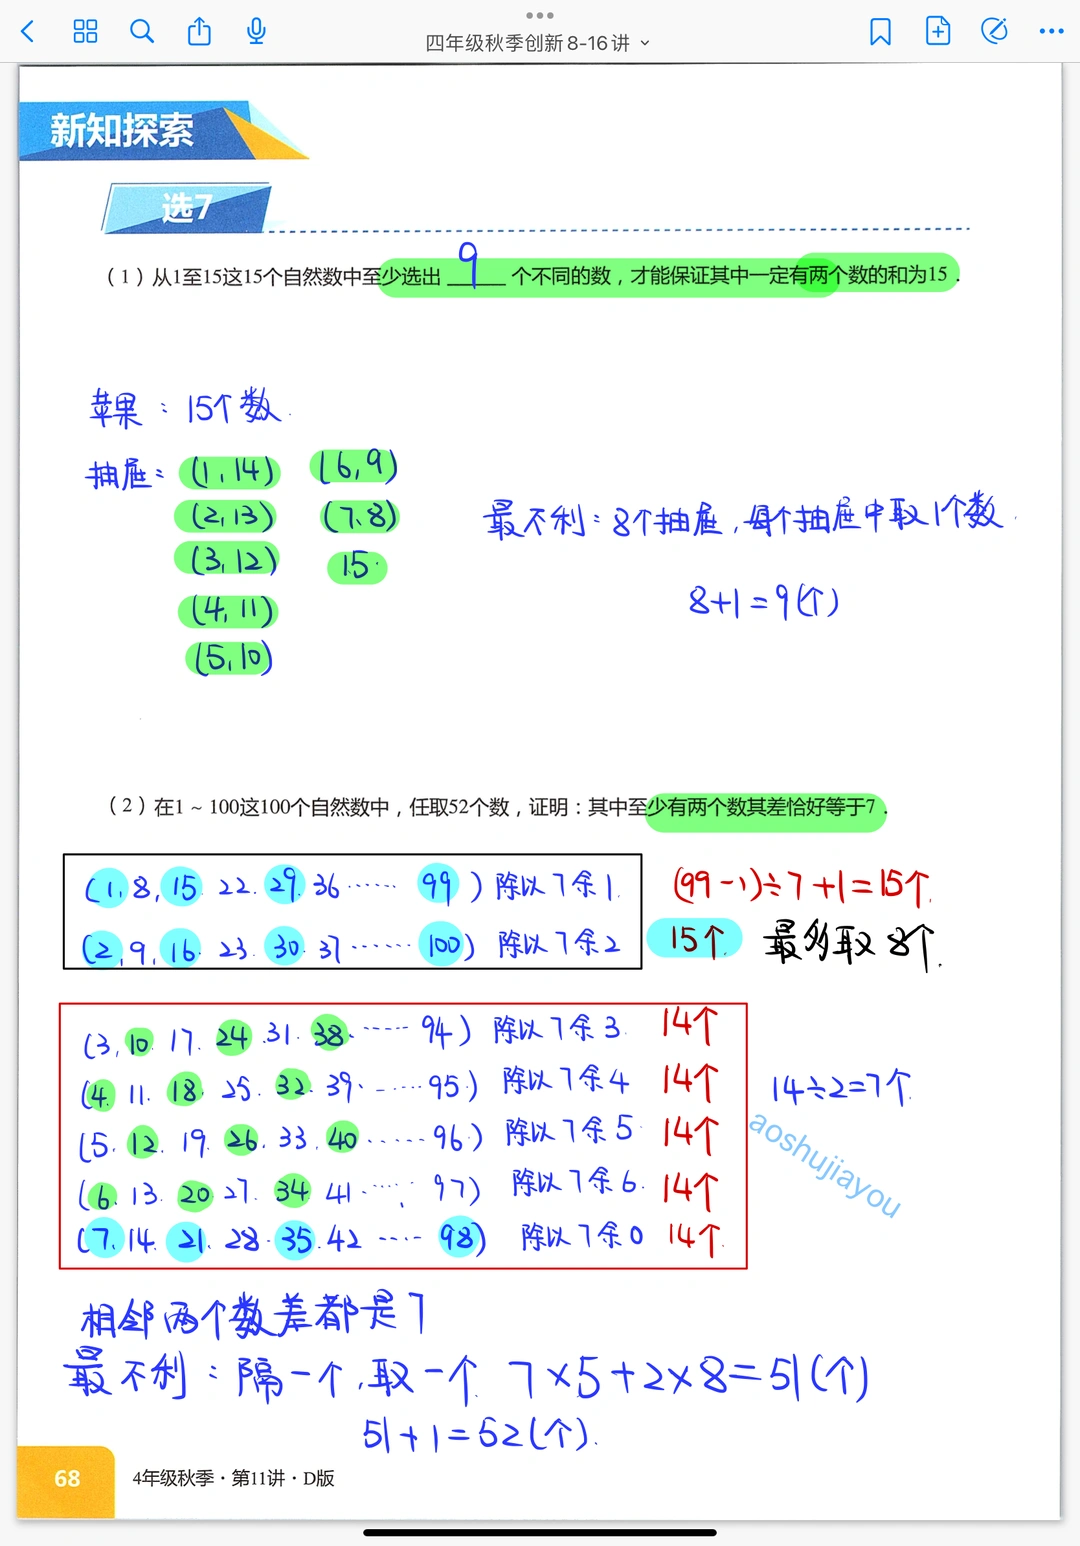 四年级秋季创新8-16讲
新知探索
选7
（1）从1至15这15个自然数中至少选出 9 个不同的数，才能保证其中一定有两个数的和为15．
苹果：15个数.
抽屉：(1,14) (6,9)
(2,13) (7.8)
(3,12) 15
(4,11)
(5,10)
最不利：8个抽屉,每个抽屉中取1个数.
8+1=9(个)
（2）在1～100这100个自然数中，任取52个数，证明：其中至少有两个数其差恰好等于7．
(1,8,15.22.29.36……99) 除以7余1. (99-1)÷7+1=15个.
(2,9,16.23.30.37……100) 除以7余2 15个. 最多取8个.
(3,10.17.24.31.38.……94) 除以7余3. 14个
(4.11.18.25.32.39.……95) 除以7余4 14个 14÷2=7个.
(5.12.19.26.33.40……96) 除以7余5 14个
(6.13.20.27.34.41.……97) 除以7余6. 14个
(7.14.21.28.35.42……98) 除以7余0 14个.
aoshujiayou
相邻两个数差都是7
最不利：隔一个,取一个. 7×5+2×8=51(个)
51+1=52(个).
68 4年级秋季·第11讲·D版